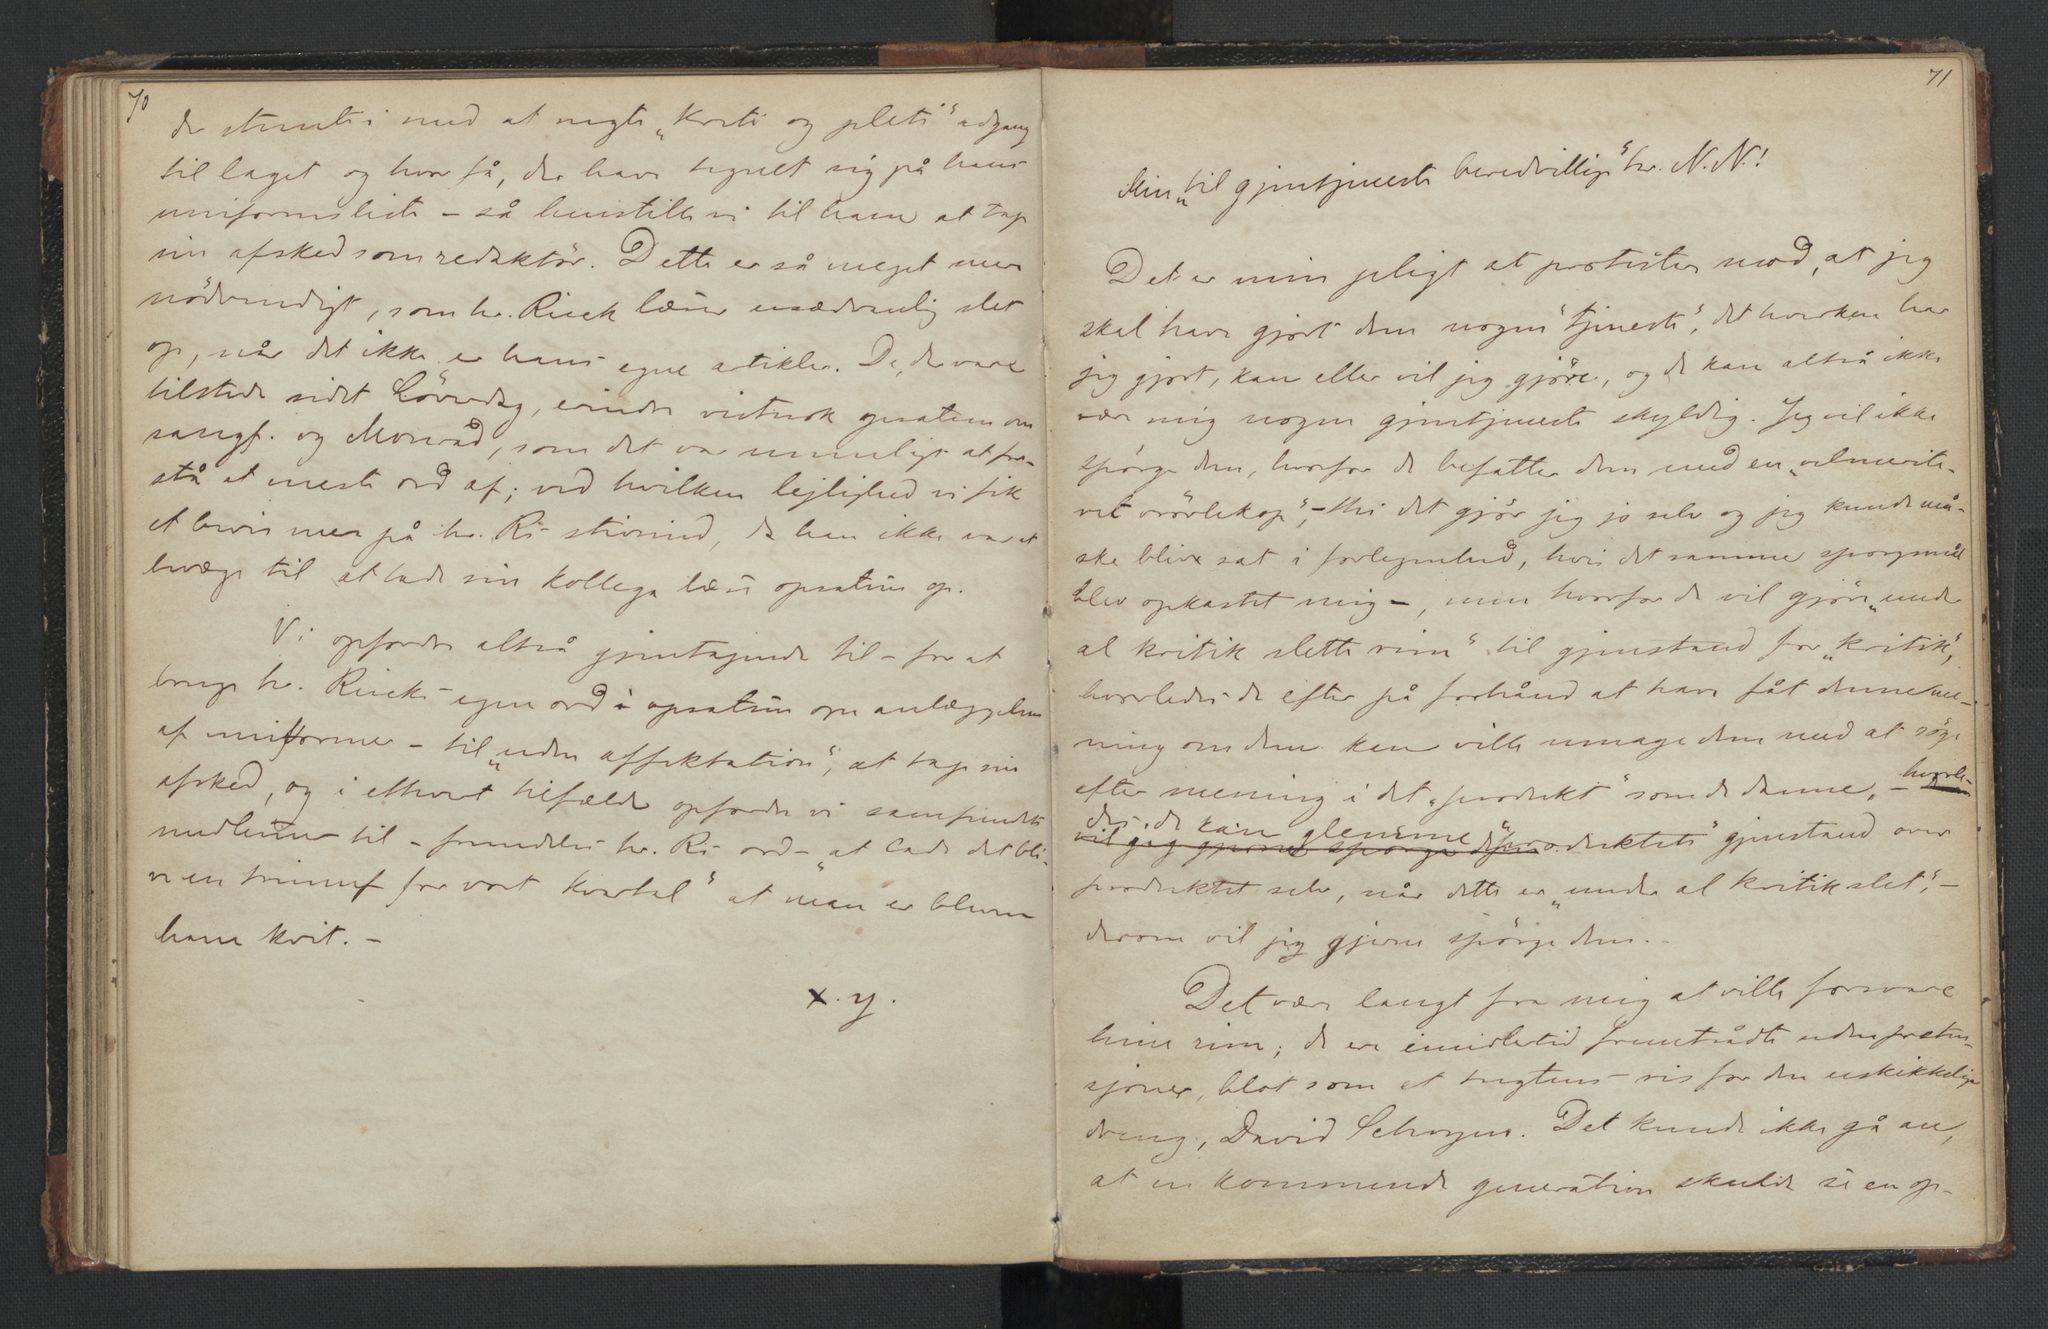 70
de stemte i med at negte „Krete og pleti“ adgang
til laget og hvor få, der have tegnet sig på hans
uniformsliste – så henstille vi til ham at tage
sin afsked som redaktör. Dette er så meget mere
nödvendigt, som hr. Rieck læser usædvanlig slet
op, når det ikke er hans egne artikler. De, der vare
tilstede sidst Löverdag, erindre vistnok opsatsen om
sangf. og Monrad, som det var umuligt at for-
stå et meste ord af; ved hvilken lejlighed vi fik
et bevis mer på hr. R's stivsind, da han ikke var at
bevæge til at lade sin kollega læse opsatsen op.
Vi opfordre altså gjentagende til – for at
bruge hr. Riecks egne ord i opsatsen om anlæggelsen
af uniformer – til „uden affektation“, at tage sin
afsked, og i ethvert tilfælde opfordre vi samfundets
medlemer til – fremdeles hr. R's ord – „at lade det bli-
ve en triumf for vort kvartal“ at man er bleven
ham kvit. –
x. y.
71
Min „til gjentjeneste beredvillige“ hr. N. N.!
Det er min pligt at protestere mod, at jeg
skal have gjort dem nogen „tjeneste“, det hverken har
jeg gjort, kan eller vil jeg gjöre, og de kan altså ikke
være mig nogen gjentjeneste skyldig. Jeg vil ikke
spörge dem, hvorfor de befatter dem med en „velmerite-
vet vrövlekop“, – thi det gjör jeg jo selv og jeg kunde må-
ske blive sat i forlegenhed, hvis det samme sporgsmål
blev opkastet mig –, men hvorfor de vil gjöre „under
al kritik slette rim“ til gjenstand for „kritik“,
hvorledes de efter på forhånd at have fåt denne me-
ning om dem kan ville umage dem med at söge
efter mening i det „produkt“ som de danne, – hvorle-
des de kan glemme „produktets“ gjenstand over
produktet selv, når dette er „under al kritik slet“, –
derom vil jeg gjerne spörge dem. –
Det være langt fra mig at ville forsvare
hine rim; de ere imidlertid fremtrådte uden preten-
sjoner, blot som et tugtens ris for den uskikkelige
dreng, David Schoyen. Det kunde ikke gå an,
at en kommende generation skulde se en op-